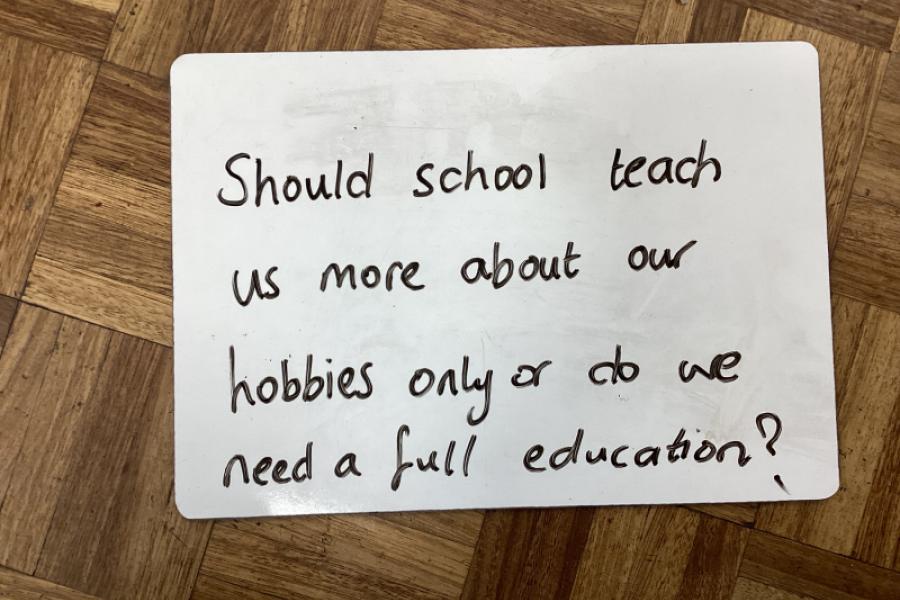 Should school teach
us more about our
hobbies only or do we
need a full education?